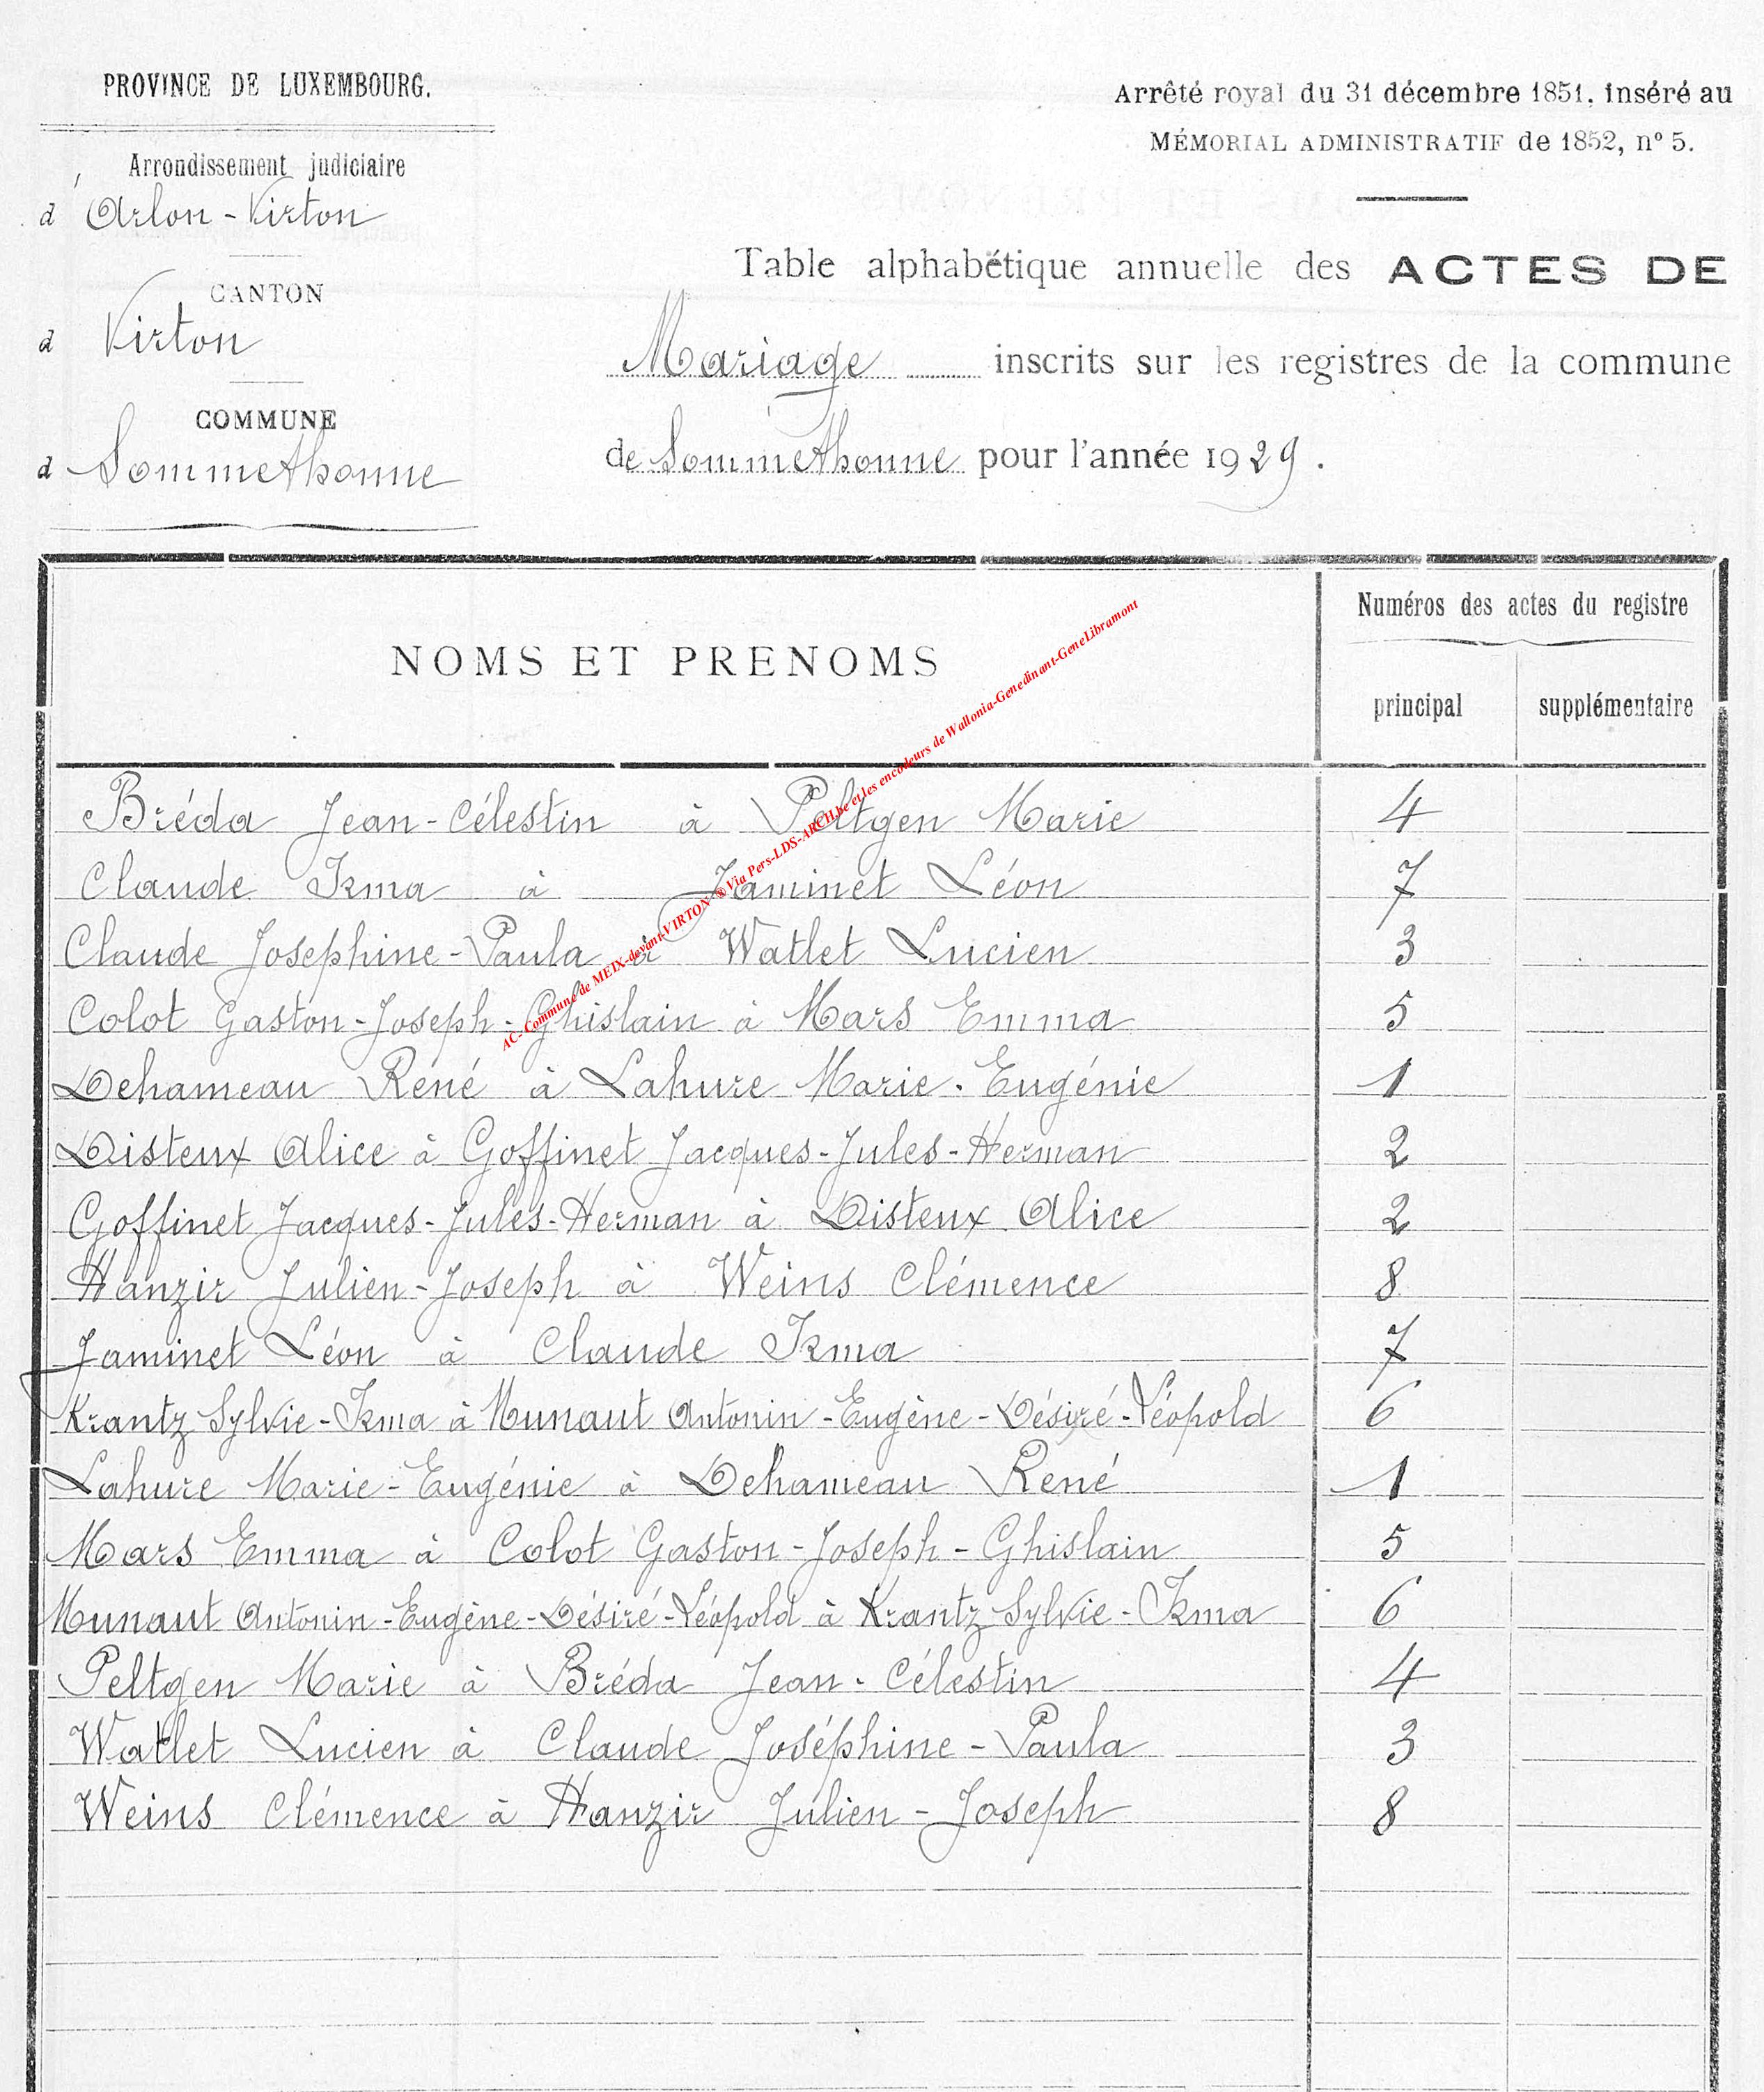 PROVINCE DE LUXEMBOURG.
Arrondissement judiciaire
d' Arlon - Virton
CANTON
d Virton
COMMUNE
d Sommethonne
Arrêté royal du 31 décembre 1851, inséré au
MÉMORIAL ADMINISTRATIF de 1852, n° 5.
Table alphabétique annuelle des ACTES DE
Mariage inscrits sur les registres de la commune
de Sommethonne pour l'année 1929.
NOMS ET PRENOMS
Numéros des actes du registre
principal supplémentaire
AC-Commune de MEIX-devant-VIRTON ® Via Pers-LDS-ARCH.be et les encodeurs de Wallonia-Genedinant-GeneLibramont
Bréda Jean-Célestin à Peltgen Marie 4
Claude Irma à Jaminet Léon 7
Claude Josephine-Paula à Watlet Lucien 3
Colot Gaston-Joseph-Ghislain à Mars Emma 5
Dehameau Réné à Lahure Marie-Eugénie 1
Disteux Alice à Goffinet Jacques-Jules-Herman 2
Goffinet Jacques-Jules-Herman à Disteux Alice 2
Hanzir Julien-Joseph à Weins Clémence 8
Jaminet Léon à Claude Irma 7
Krantz Sylvie-Irma à Munaut Antonin-Eugène-Désiré-Léopold 6
Lahure Marie-Eugénie à Dehameau René 1
Mars Emma à Colot Gaston-Joseph-Ghislain 5
Munaut Antonin-Eugène-Désiré-Léopold à Krantz Sylvie-Irma 6
Peltgen Marie à Bréda Jean-Célestin 4
Watlet Lucien à Claude Joséphine-Paula 3
Weins Clémence à Hanzir Julien-Joseph 8